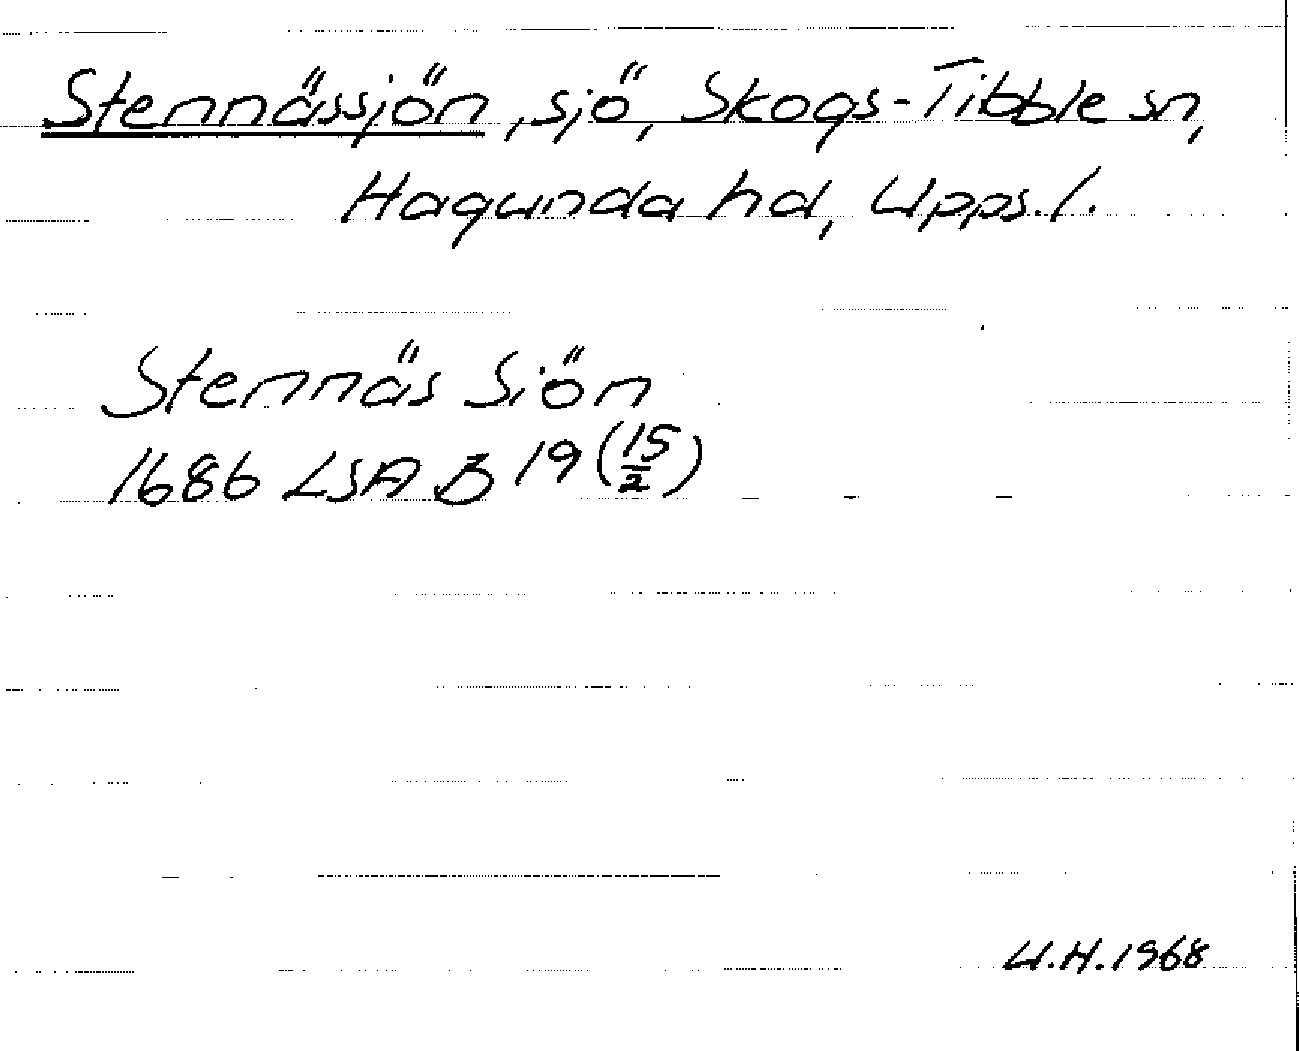 Stennässjön, sjö, Skogs-Tibble sn,
Hagunda hd, Upps. l.
Stennäs Siön
1686 LSA B 19 (15/2)
U.H. 1968